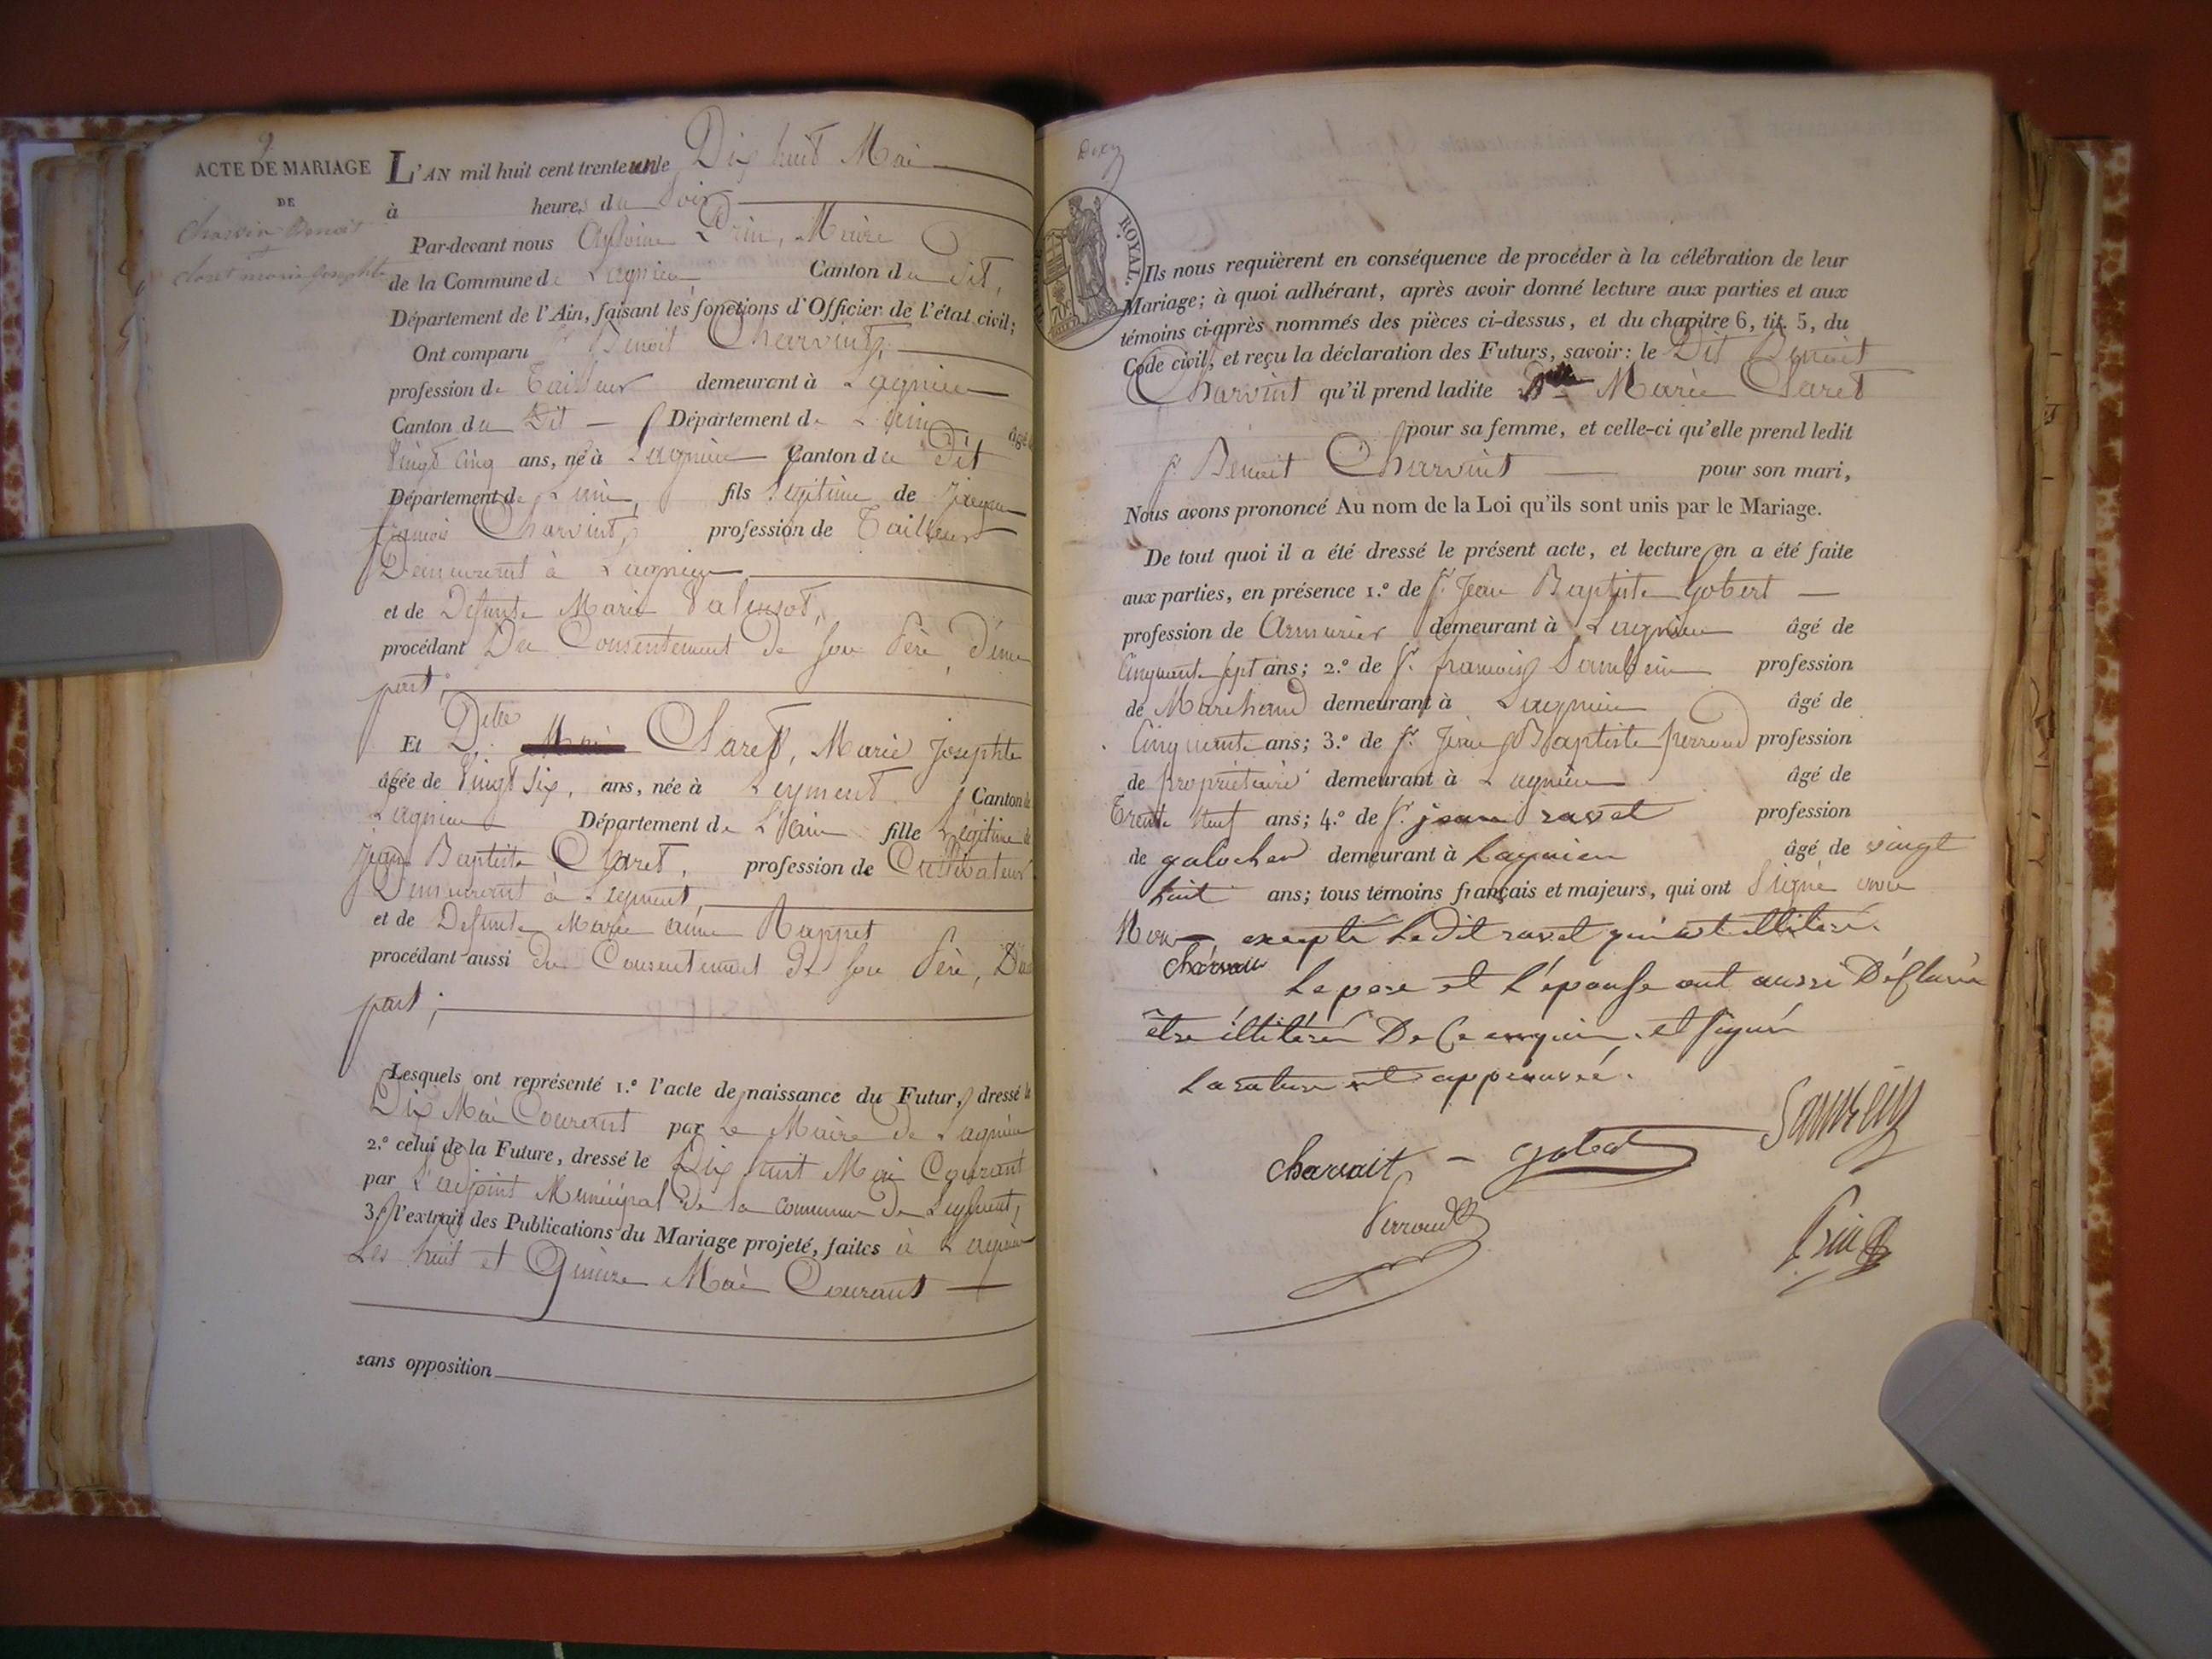 9
ACTE DE MARIAGE
DE
Charvin Benoit
et
Claret marie Josephte
L'AN mil huit cent trente un le Dix huit Mai
à heures du Soir
Par-devant nous Antoine Prin, Maire
de la Commune de Lagnieu Canton du dit,
Département de l'Ain, faisant les fonctions d'Officier de l'état civil;
Ont comparu Sr Benoit Charvint,
profession de Tailleur demeurant à Lagnieu
Canton du Dit Département de L'ain âgé de
Vingt Cinq ans, né à Lagnieu Canton du Dit
Département de L'ain, fils légitime de Jacques
francois Charvint, profession de Tailleur
Demeurant à Lagnieu
et de Defunte Marie
procédant Du Consentement de son Père, d'une
part;
Et Dlle Claret, Marie Josephte
âgée de Vingt Six, ans, née à Leyment Canton de
Lagnieu Département de L'ain fille Légitime de
Jean Baptiste Claret, profession de Cultivateur
Demeurant à Leyment,
et de Defunte Marie anne Rappet
procédant aussi du Consentement de son Père, D'au
part;
Lesquels ont représenté 1.º l'acte de naissance du Futur, dressé le
Dix Mai Courant par Le Maire de Lagnieu
2.º celui de la Future, dressé le Dix huit Mai Courant
par L'adjoint Municipal de la commune de Leyment,
3.º l'extrait des Publications du Mariage projeté, faites à Lagnieu
Les huit et Quinze Mai Courant
sans opposition
ROYAL.
Ils nous requièrent en conséquence de procéder à la célébration de leur
Mariage; à quoi adhérant, après avoir donné lecture aux parties et aux
témoins ci-après nommés des pièces ci-dessus, et du chapitre 6, tit. 5, du
Code civil, et reçu la déclaration des Futurs, savoir: le Dit Benoit
Charvint qu'il prend ladite Dlle Marie Claret
pour sa femme, et celle-ci qu'elle prend ledit
Sr Benoit Charvint pour son mari,
Nous avons prononcé Au nom de la Loi qu'ils sont unis par le Mariage.
De tout quoi il a été dressé le présent acte, et lecture en a été faite
aux parties, en présence 1.º de Sr. Jean Baptiste Gobert
profession de Armurier demeurant à Lagnieu âgé de
Cinquante sept ans; 2.º de Sr. francois profession
de Marchand demeurant à Lagnieu âgé de
Cinquante ans; 3.º de Sr. Jean Baptiste perroud profession
de propriétaire demeurant à Lagnieu âgé de
Trente Neuf ans; 4.º de Sr. jean ravet profession
de galocher demeurant à Lagnieu âgé de vingt
huit ans; tous témoins français et majeurs, qui ont Signé avec
Nous excepté Ledit ravet qui est illitéré.
Le père et L'épouse ont aussi Déclaré
être illitérés De Ce enquis. et signés
La rature est appprouvée.
charvait
gobert
Perroud
Prin